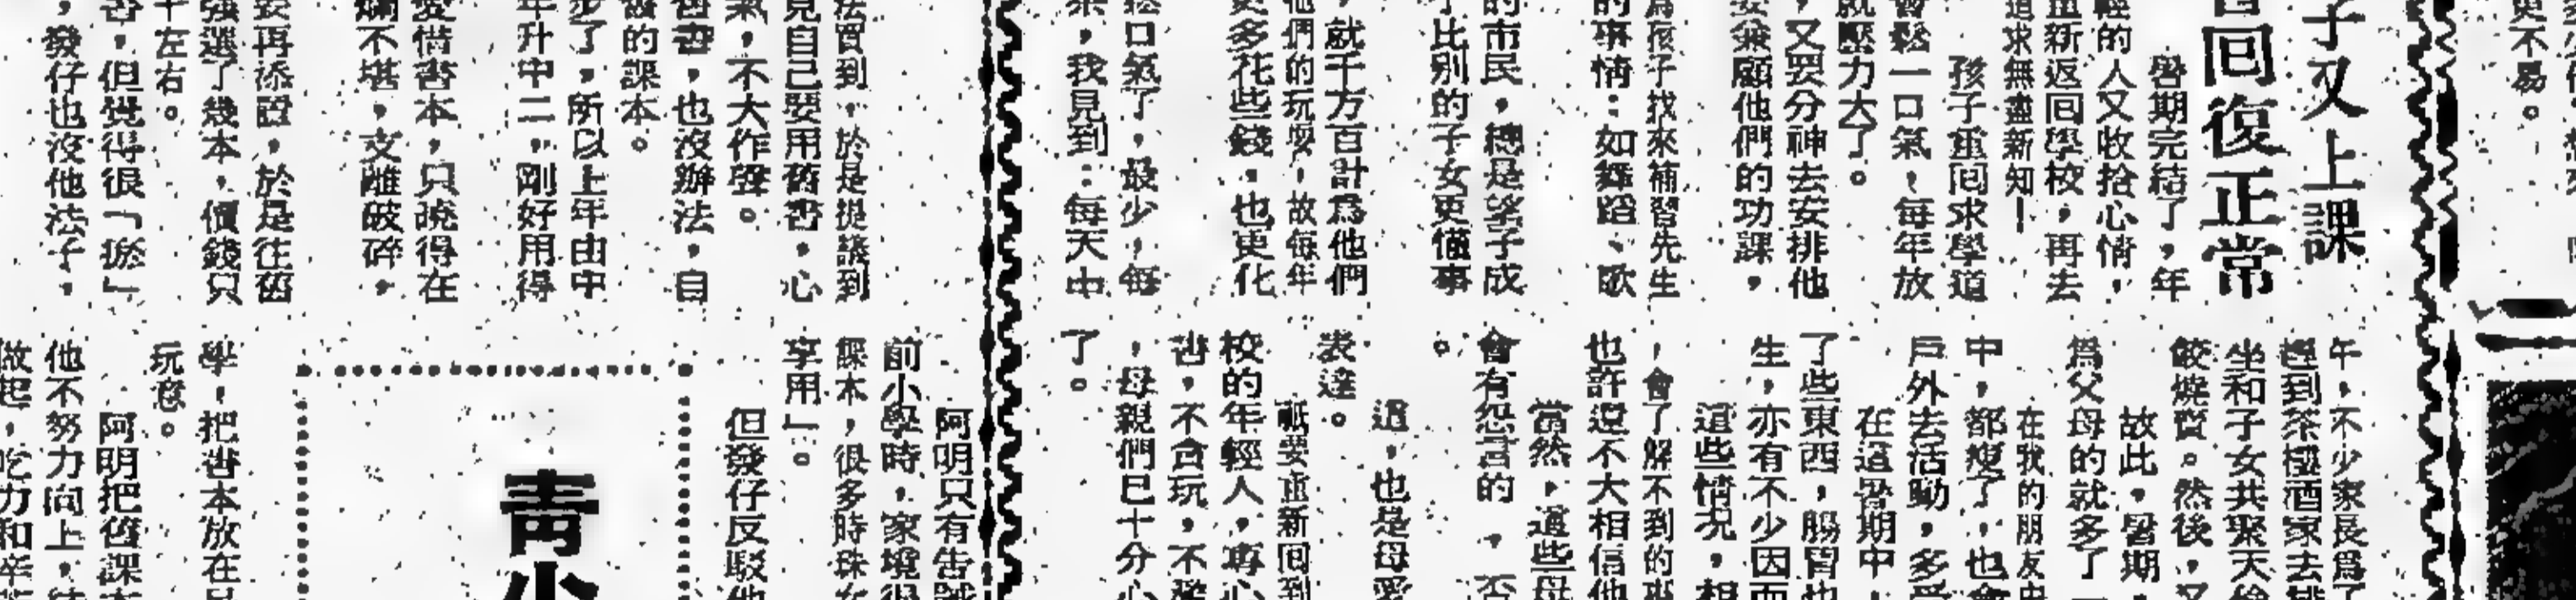 更不易。
子又上課
回復正常
暑期完結了，年
輕的人又收拾心情，
重新返回學校，再去
追求無盡新知！
孩子重回求學道
會鬆一口氣，每年放
就壓力大了。
，又要分神去安排他
要兼顧他們的功課，
爲孩子找來補習先生
的事情：如舞蹈、歌
的市民，總是望子成
比别的子女更懂事
，就千方百計爲他們
他們的玩耍，故每年
更多花些錢，也更化
鬆口氣了，最少，每
，我見到：每天中
午，不少家長爲了
趕到茶樓酒家去排
坐和子女共聚天倫
餃燒賣。然後，又
故此，暑期，
爲父母的就多了一
在我的朋友中
中，都瘦了，也會
戶外去活動，多受
在這暑期中，
了些東西，腸胃也
生，亦有不少因而
這些情况，相
，會了解不到的事
也許還不大相信他
當然，這些母
會有怨言的，否
。
這，也是母愛
表達。
祇要重新回到
校的年輕人，專心
書，不貪玩，不
，母親們已十分心
了。
法買到，於是提議到
見自己要用舊書，心
氣，不大作聲。
舊書，也沒辦法，自
舊的課本。
步了，所以上年由中
年升中二，剛好用得
愛惜書本，只曉得在
爛不堪，支離破碎，
要再添置，於是往舊
強選了幾本，價錢只
十左右。
書，但覺得很「瘀」
，發仔也沒他法子，
阿明只有告誡
前小學時，家境很
課本，很多時殊
享用」。
但發仔反駁他
青少
學，把書本放在
玩意。
阿明把舊課本
他不努力向上，
做起，吃力和辛